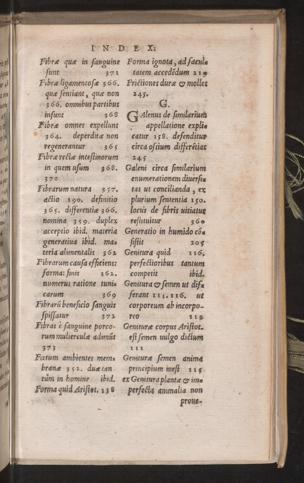 INDEX.
Fibræ quæ in sanguine
sunt 371
Fibræ ligamentosæ 366.
quæ sentiant, quæ non
366. omnibus partibus
insunt 368
Fibræ omnes expellunt
364. deperditæ non
regenerantur 365
Fibræ rectæ intestinorum
in quem usum 368.
370
Fibrarum natura 357.
actio 190. definitio
365. differentiæ 366.
nomina 359. duplex
acceptio ibid. materia
generatiua ibid. ma-
teria alimentalis 362
Fibrarum causa efficiens:
forma: finis 362.
numerus ratione tuni-
carum 369
Fibrarū beneficio sanguis
spissatur 372
Fibras è sanguine porco-
rum mulierculæ
373
Fœtum ambientes mem-
branæ 352. duæ tan-
tùm in homine ibid.
Forma quid Aristot. 138
Forma ignota, ad facul-
tatem accedēdum 210
Frictiones duræ & molles
243.
G.
GAlenus de similarium
appellatione expli-
catur 158. defenditur
circa ostium differētias
245
Galeni circa similarium
enumerationem diuersi-
tas ut concilianda, ex
plurium sententia 150.
locus de fibris uitiatus
restituitur 360
Generatio in humido cō-
sistit 205
Genitura quid 116.
perfectioribus tantum
competit ibid.
Genitura & semen ut dif-
ferant 115. 116. ut
corporeum ab incorpo-
reo 119
Genituræ corpus Aristot.
est semen uulgo dictum
111
Genituræ semen anima
principium inest 115
ex Genitura plantæ & im-
perfecta animalia non
proue-